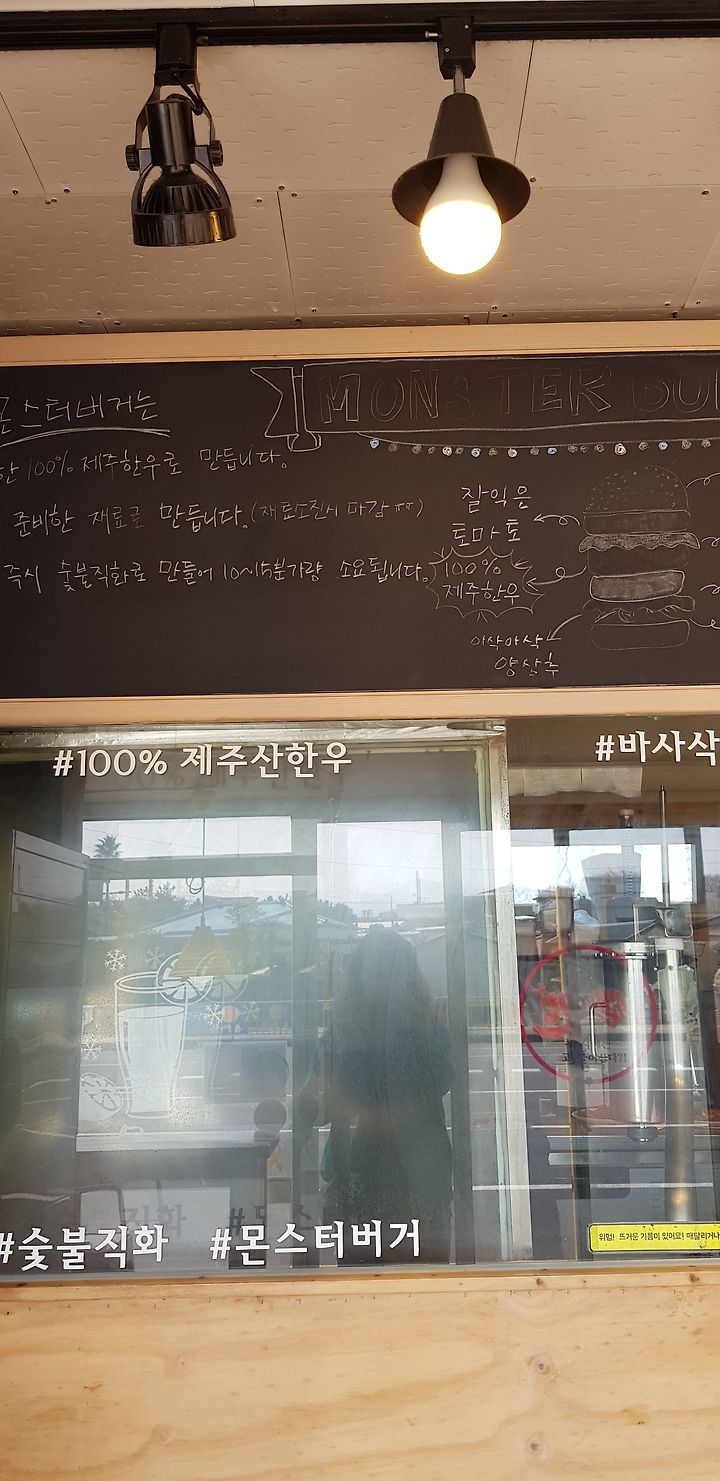 몬스터버거는
MONSTER BU
한 100% 제주한우로 만듭니다.
준비한 재료로 만듭니다. (재료소진시 마감 ㅠㅠ)
즉시 숯불직화로 만들어 10~15분가량 소요됩니다.
잘익은
토마토
100%
제주한우
아삭아삭
양상추
#100% 제주산한우
#바사삭
#숯불직화 #몬스터버거
위험! 뜨거운 기름이 있어요! 매달리거나